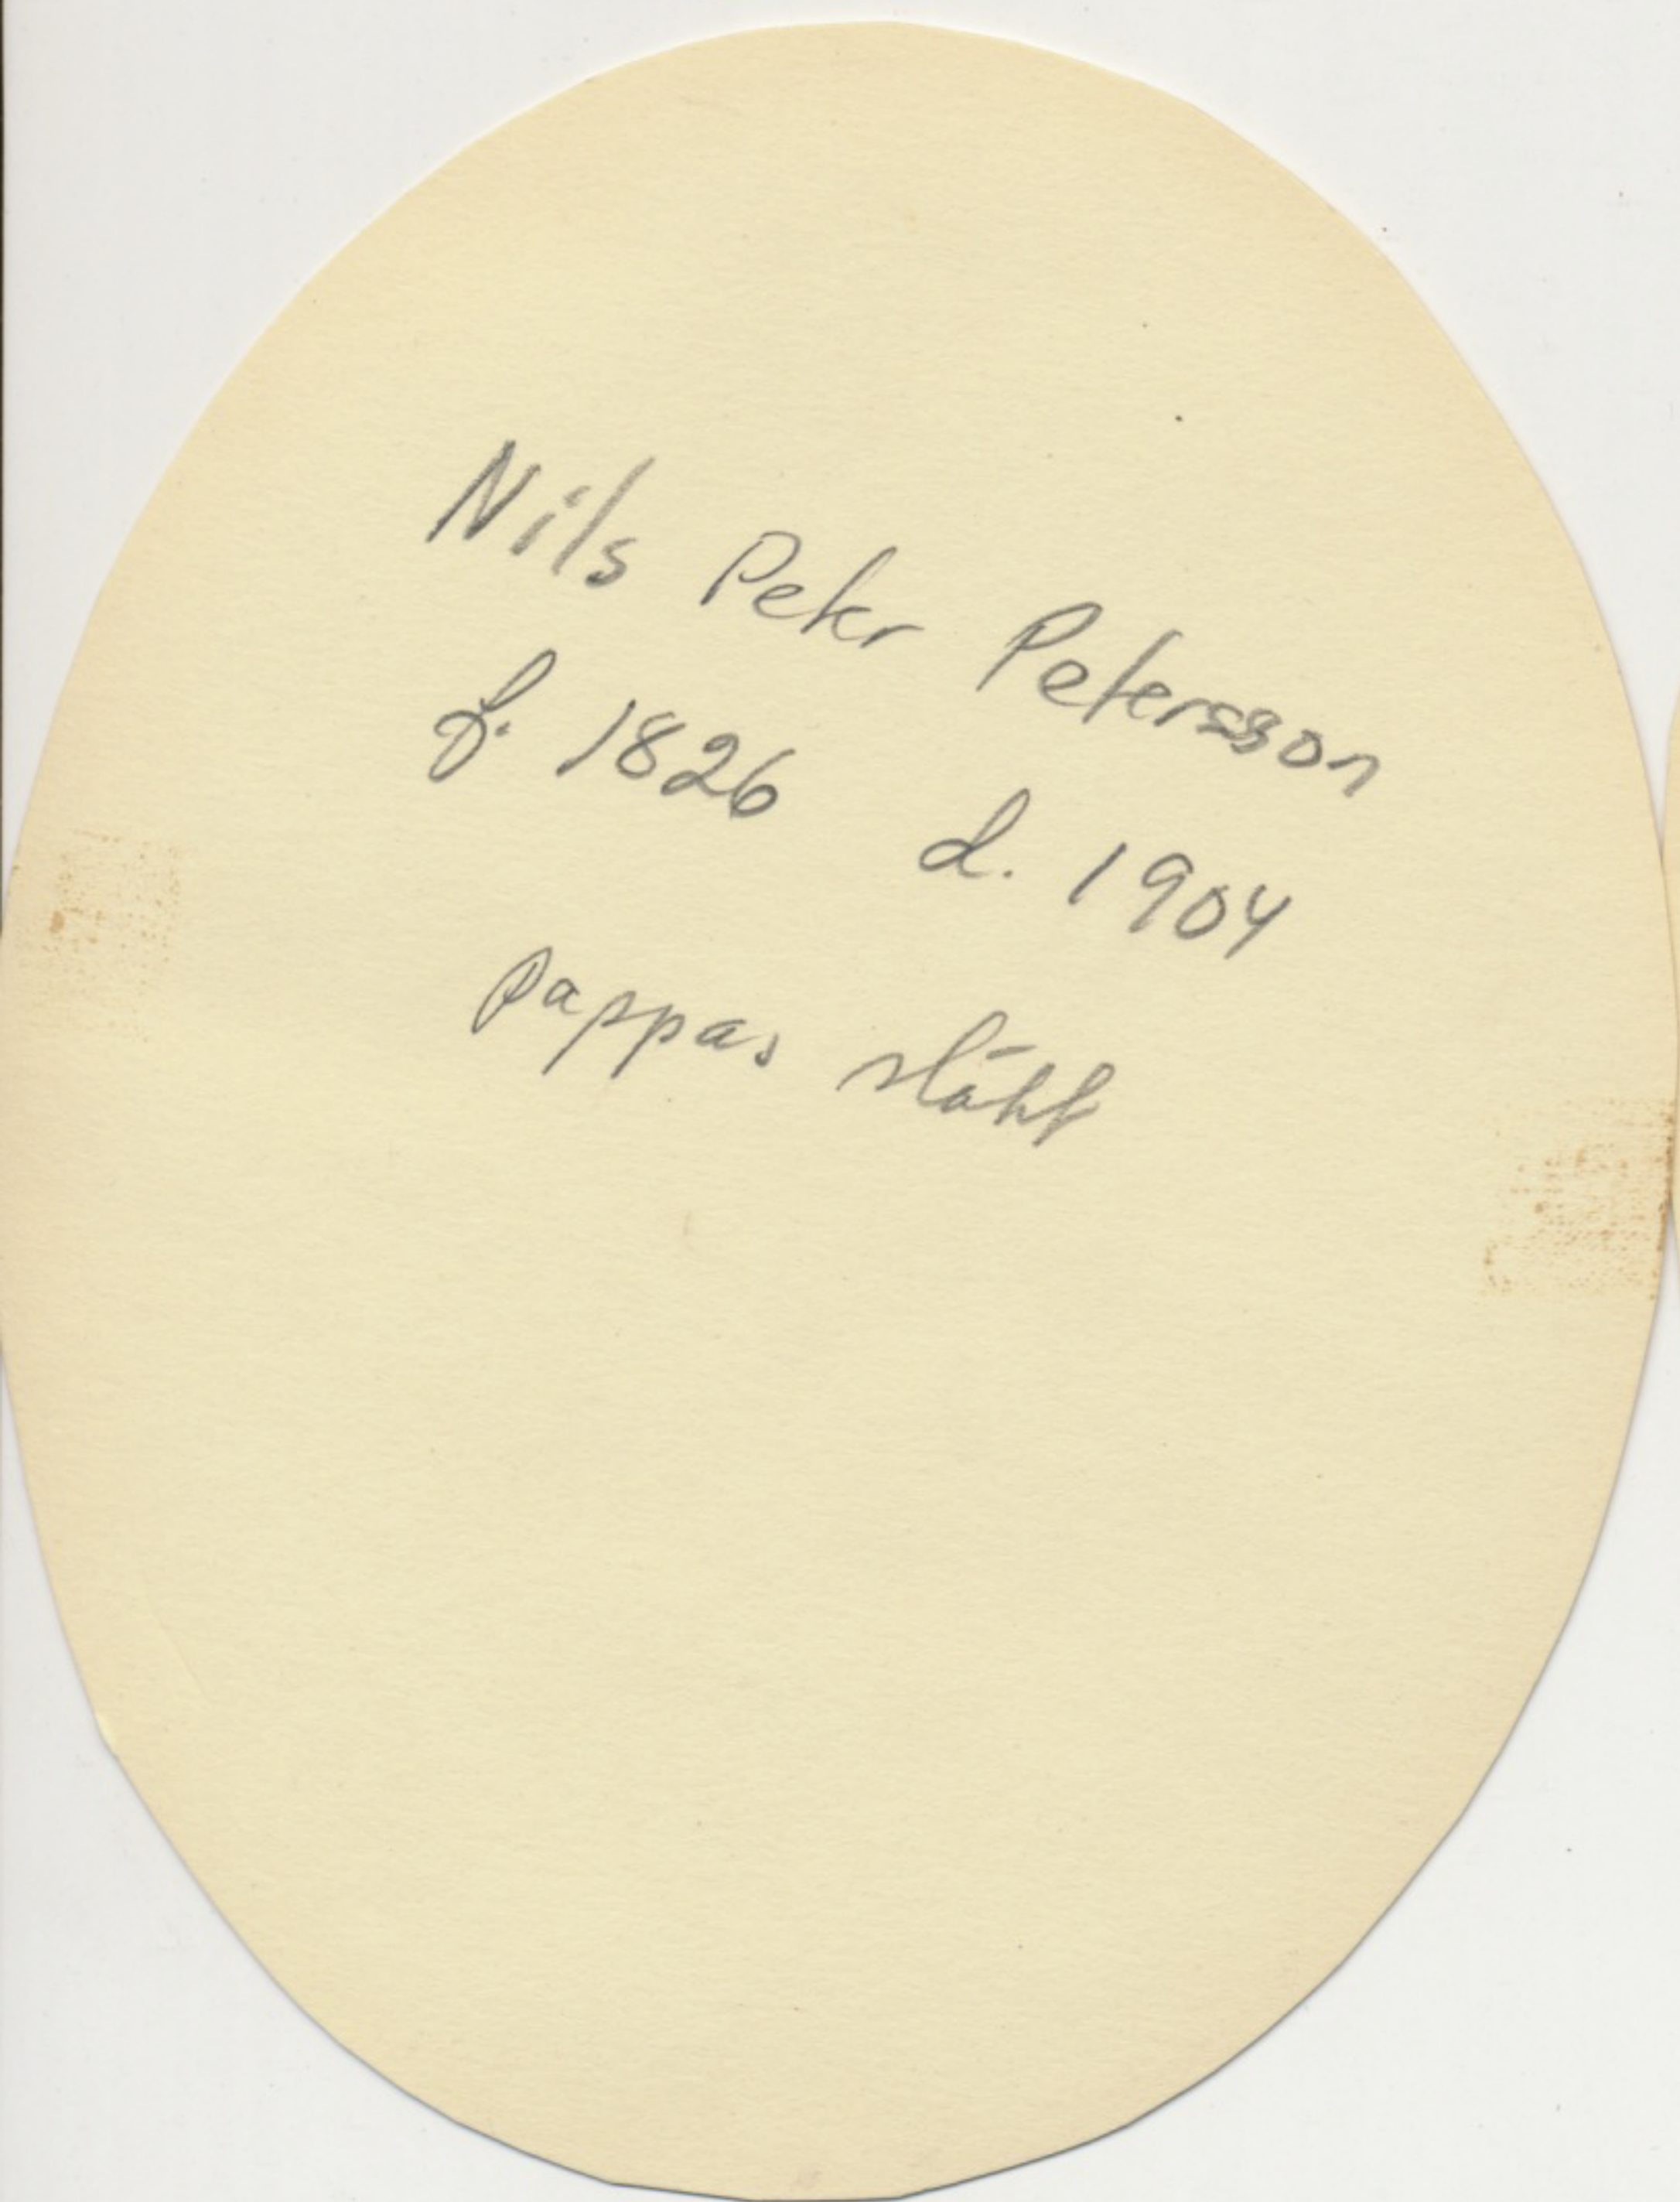 Nils Peter Petersson
f. 1826 d. 1904
pappas släkt